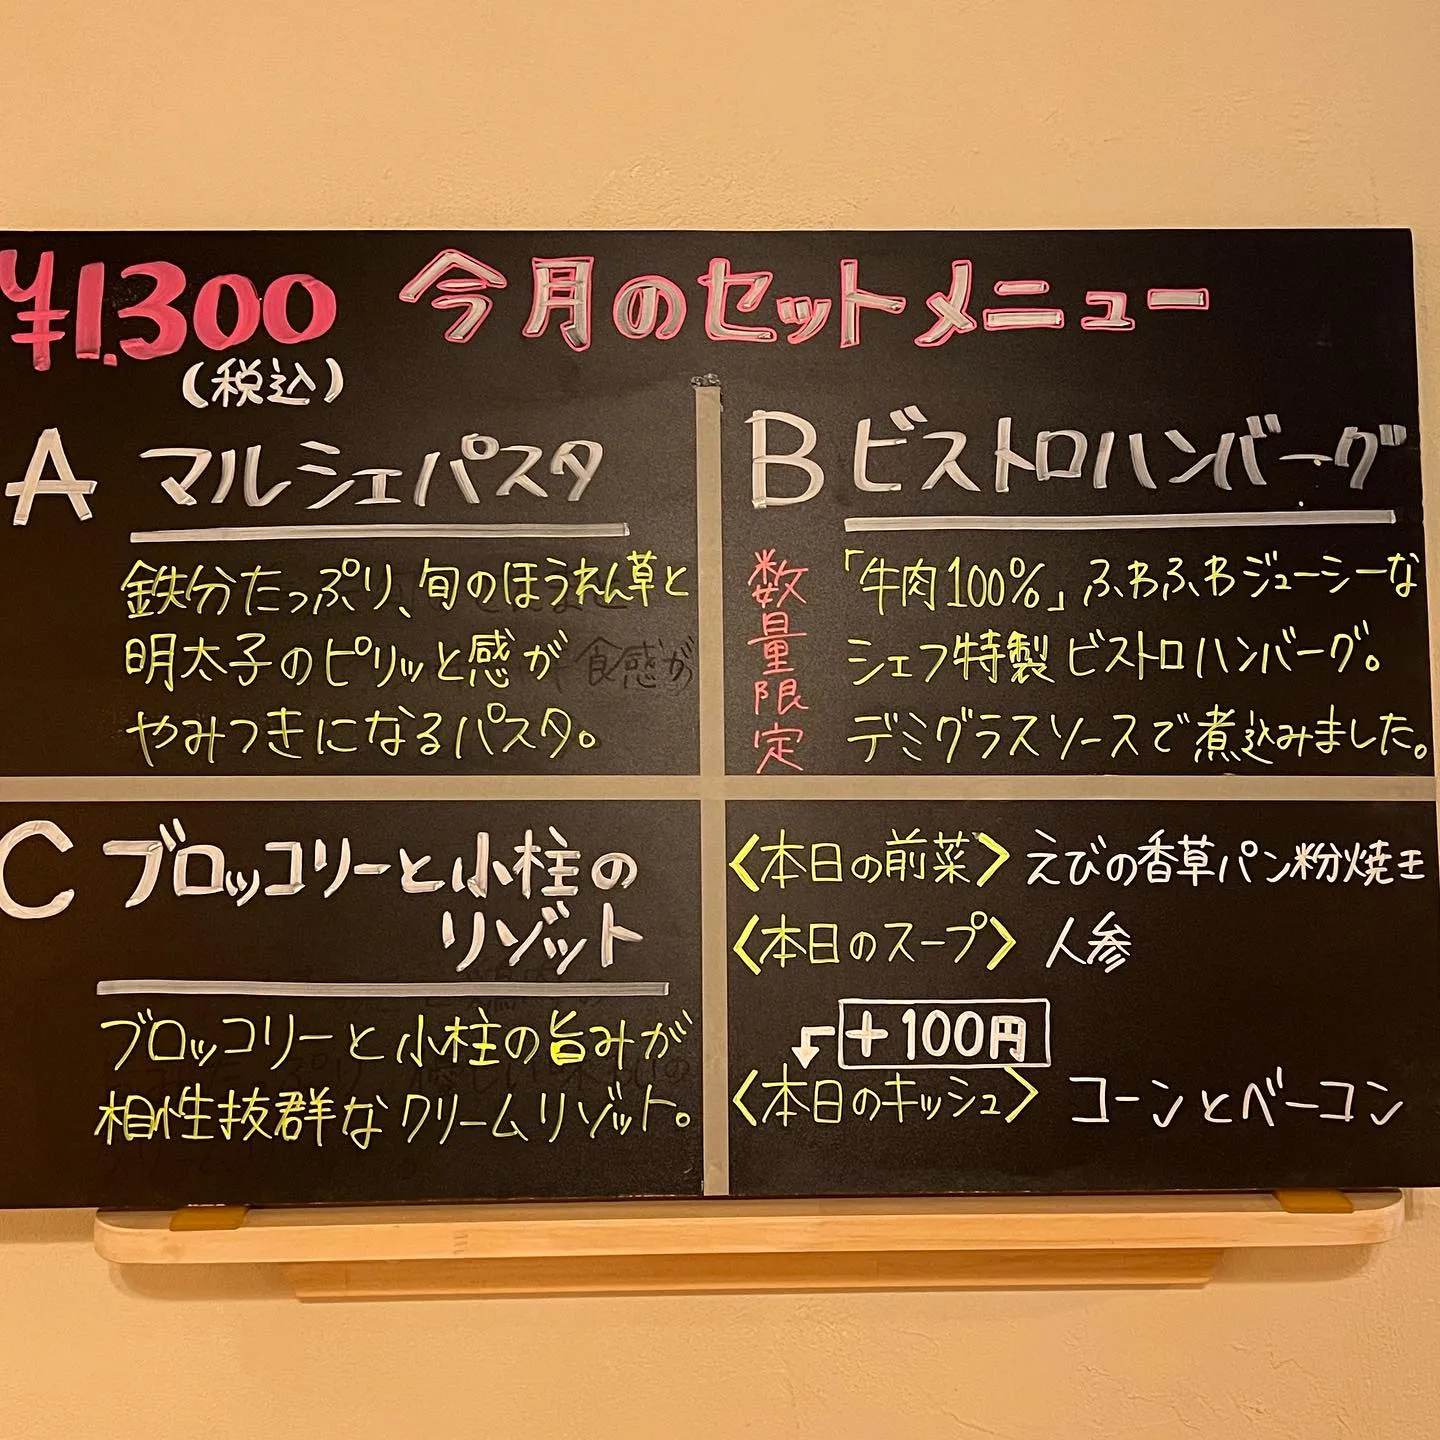 ¥1,300 今月のセットメニュー
(税込)
A マルシェパスタ
鉄分たっぷり、旬のほうれん草と
明太子のピリッと感が
やみつきになるパスタ。
B ビストロハンバーグ
数量限定
「牛肉100%」ふわふわジューシーな
シェフ特製ビストロハンバーグ。
デミグラスソースで煮込みました。
C ブロッコリーと小柱の
リゾット
ブロッコリーと小柱の旨みが
相性抜群なクリームリゾット。
〈本日の前菜〉えびの香草パン粉焼き
〈本日のスープ〉人参
+100円
〈本日のキッシュ〉コーンとベーコン